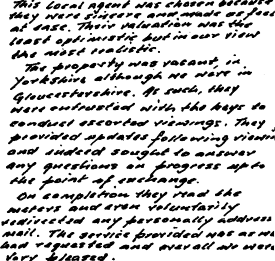 This local agent was chosen because
they were sincere and made our feel
at ease. Their valuation was the
least optimistic but in our view
the most realistic.
The property was vacant, in
Yorkshire although we were in
Gloucestershire. As such, they
were entrusted with the keys to
conduct escorted viewings. They
provided updates following viewin
and indeed sought to answer
any questions on progress up to
the point of exchange.
On completion they read the
meters and even voluntarily
redirected any personally address
mail. The service provided was as we
had requested and overall we were
very pleased.